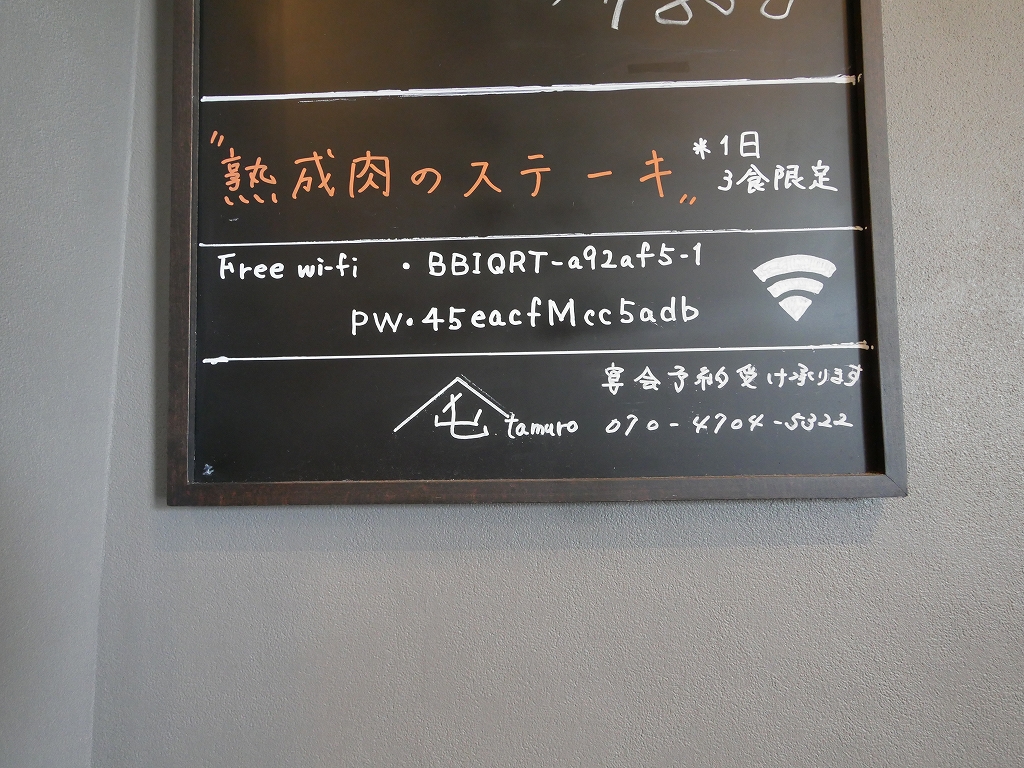 "熟成肉のステーキ"
*1日
3食限定
Free wi-fi ・BBIQRT-a92af5-1
PW・45eacfMcc5adb
宴会予約受け承ります
tamuro 070-4704-5322